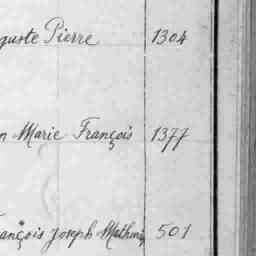 guste Pierre 1304
n Marie François 1377
rançois Joseph Mathurin 501